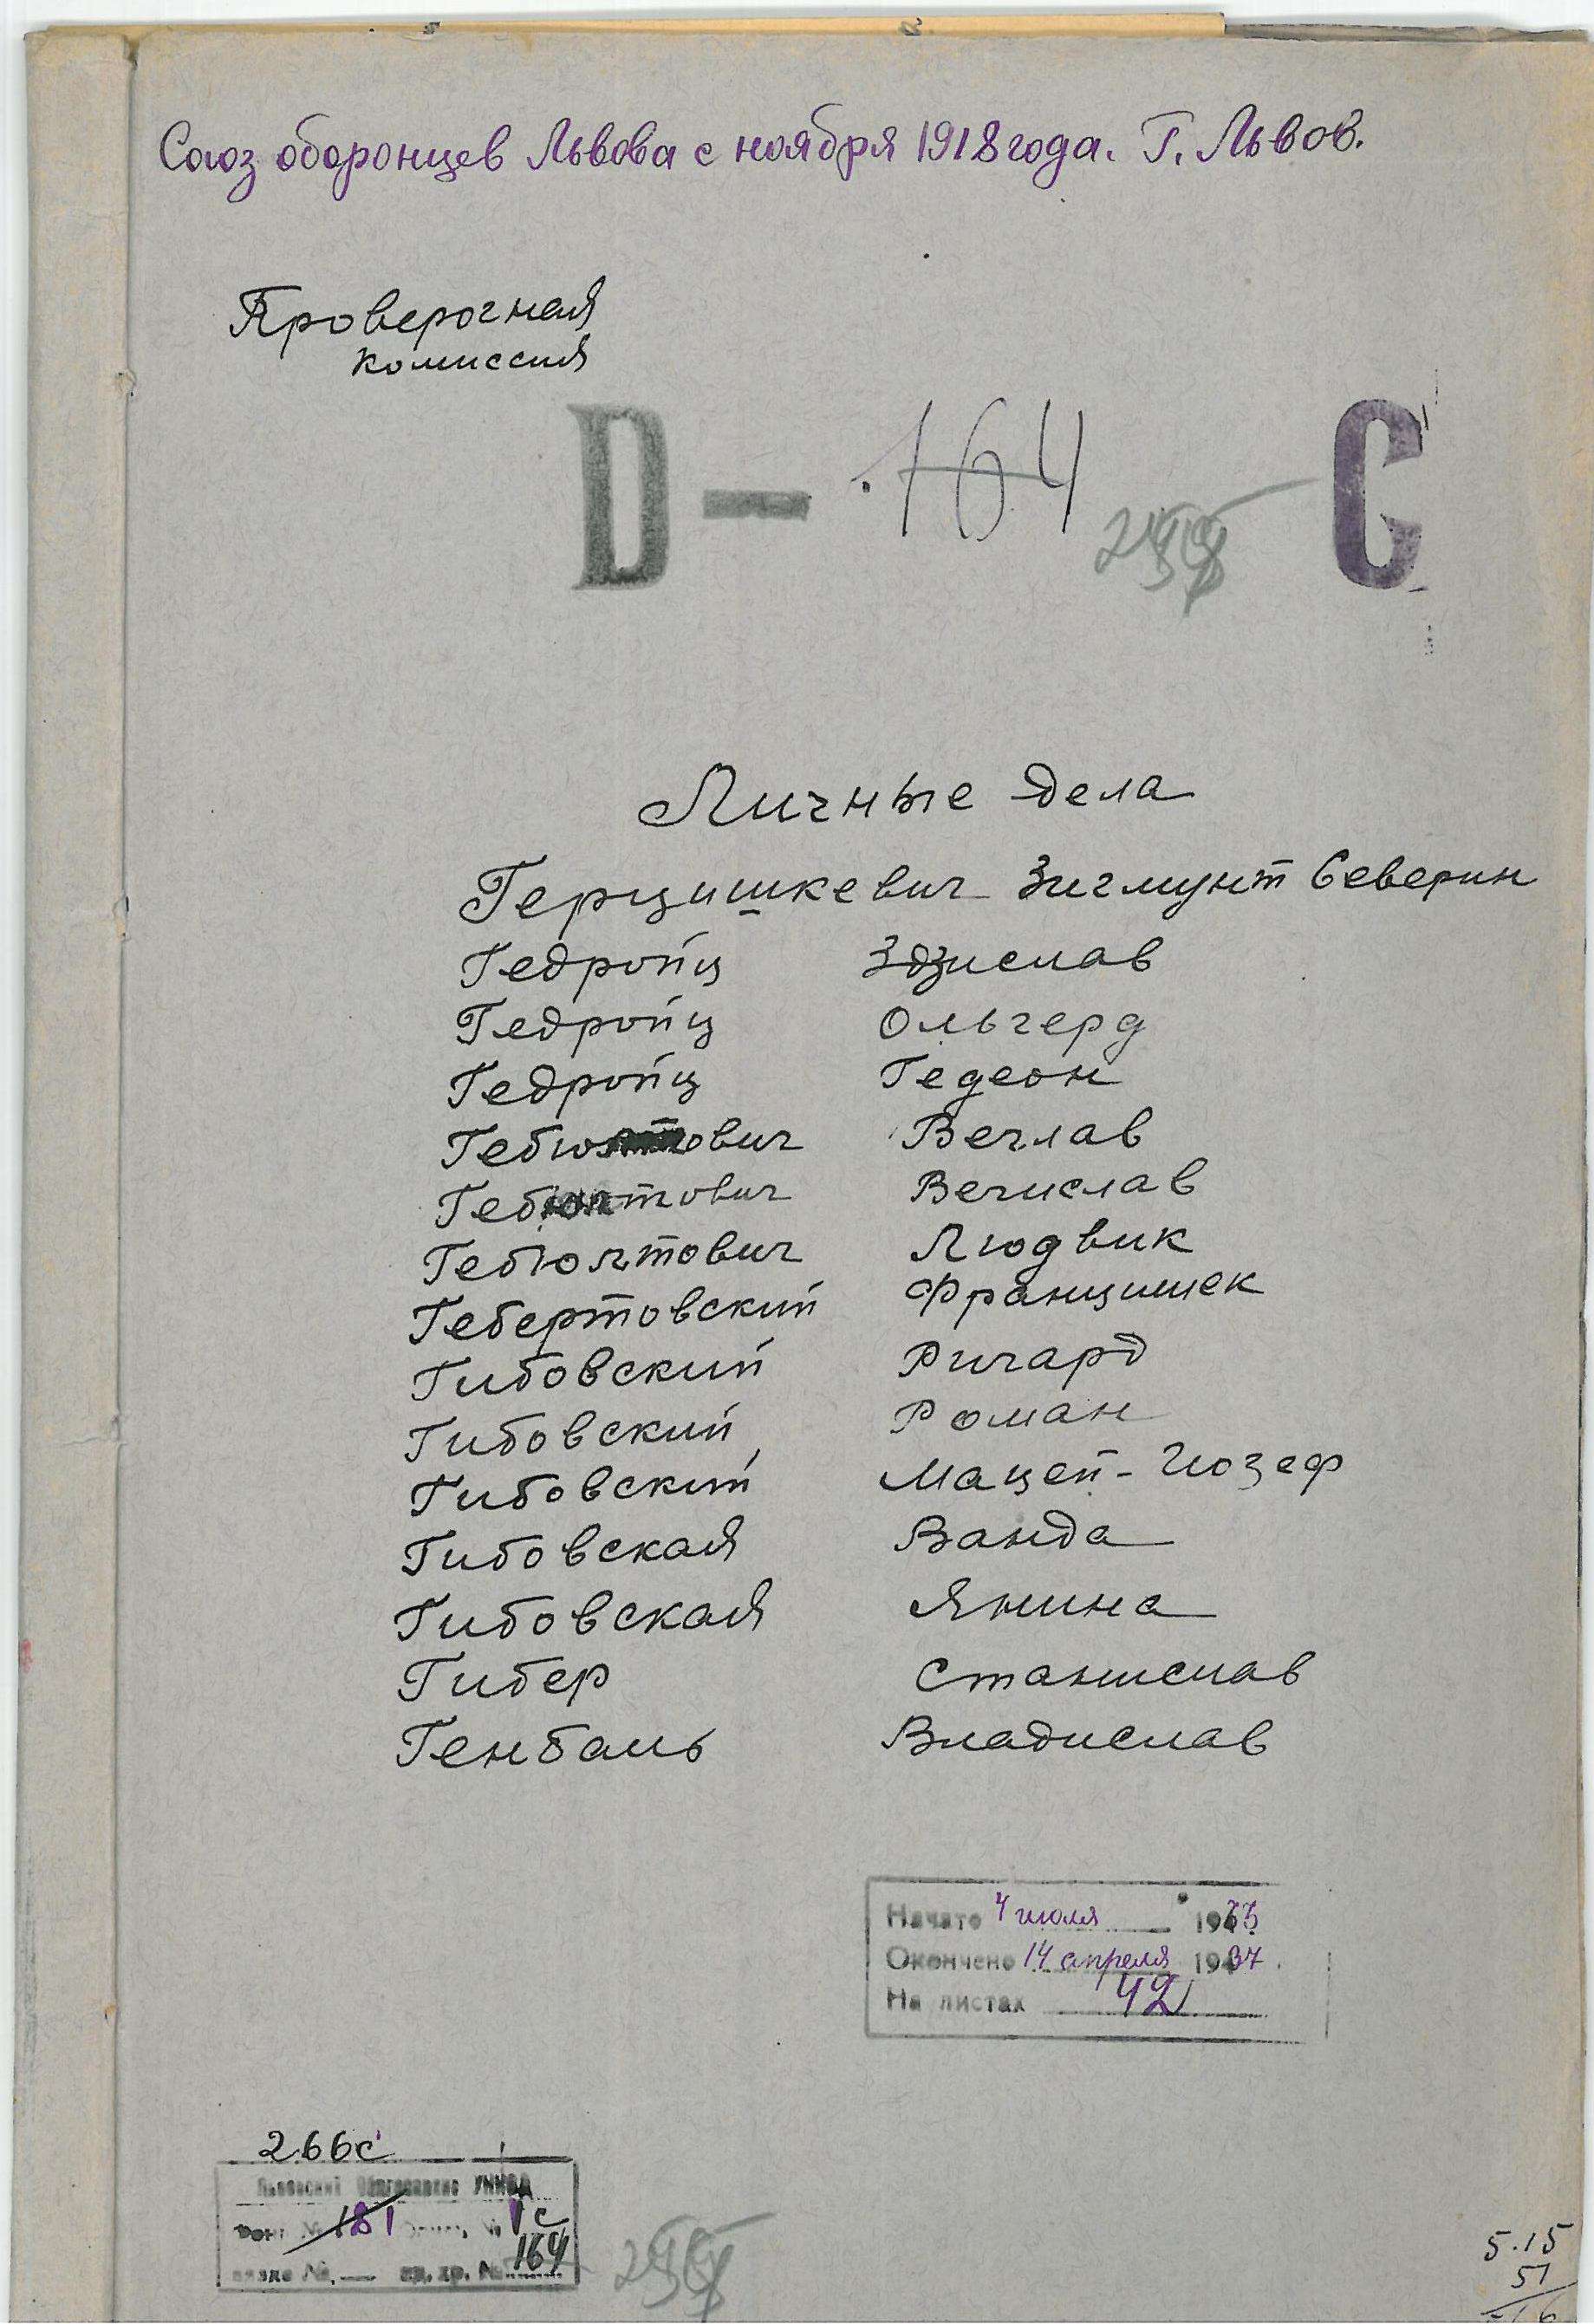 Союз оборонцев Львова с ноября 1918 года. Г. Львов.
Проверочная
комиссия
D — 164 C
Личные дела
Герцишкевич Зигмунт Северин
Гедройц Здзислав
Гедройц Ольгерд
Гедройц Гедеон
Вечлав
Вечислав
Гебюлтович Людвик
Гебертовский Францишек
Гибовский Ричард
Гибовский Роман
Гибовский Мацей-Иозеф
Гибовская Ванда
Гибовская Янина
Гибер Станислав
Генбаль Владислав
Начато 4 июля 1933
Окончено 14 апреля 1937.
На листах 42
266с
Львовский Облгосархив УНКВД
Фонд № 181 Опись № 1с
вязка № — ед. хр. № 164
5.15
51